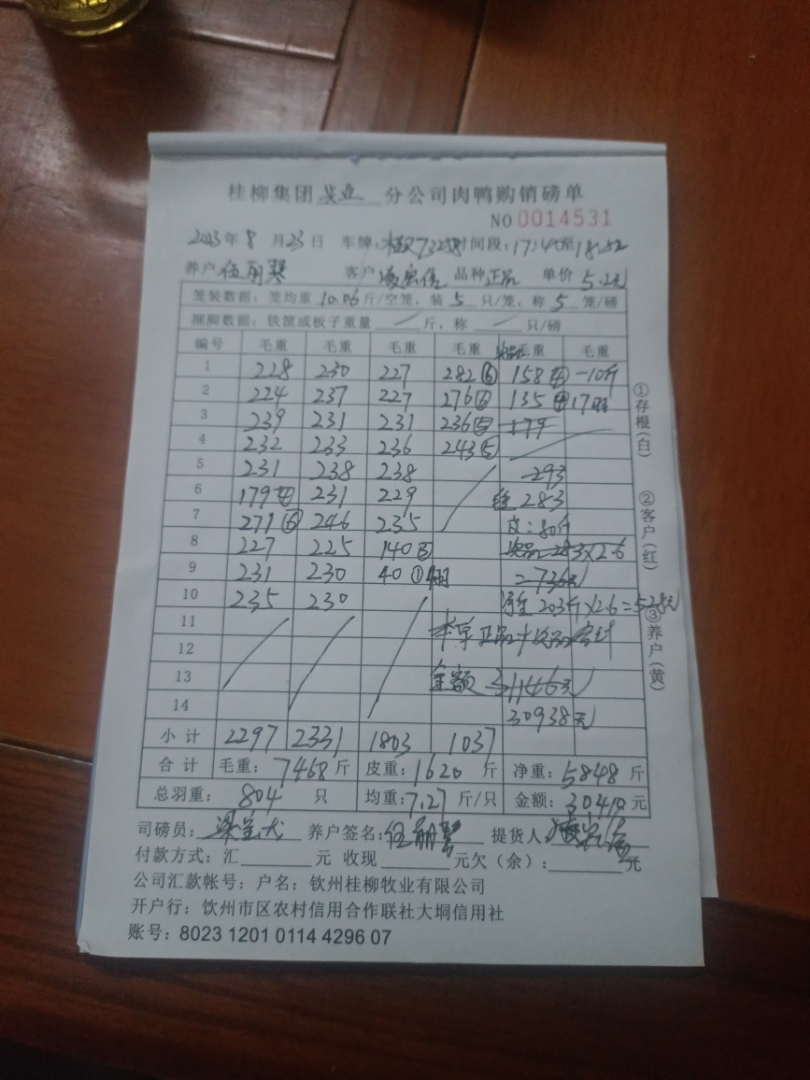 桂柳集团 分公司肉鸭购销磅单
NO 0014531
2023年8月23日 车牌: 时间段:17:40至18:52
养户 伍丽琴 客户 品种 正品 单价 5.2元
笼装数据:笼均重 10.06 斤/空笼,装 5 只/笼,称 5 笼/磅
捆脚数据:铁筐或板子重量 / 斤,称 / 只/磅
编号 毛重 毛重 毛重 毛重 毛重 毛重
1 228 230 227 282⑥ 158④ -10斤
2 224 237 227 276⑥ 135④
3 239 231 231 236⑤ 179
4 232 233 236 243⑤
5 231 238 238 293
6 179④ 231 229 283
7 271⑥ 246 235 皮:80斤
8 227 225 140③ 次品 283×2.6
9 231 230 40① =736元
10 235 230 净重 203斤×2.6=528元
11 本单正品+次品合计
12
13 金额 31146元
14 30938元
小计 2297 2331 1803 1037
合计 毛重:7468斤 皮重:1620斤 净重:5848斤
总羽重:804只 均重:7.27斤/只 金额:30410元
司磅员: 养户签名:伍丽琴 提货人:
付款方式:汇 元 收现 元欠(余): 元
公司汇款帐号:户名:钦州桂柳牧业有限公司
开户行:钦州市区农村信用合作联社大垌信用社
账号:8023 1201 0114 4296 07
①存根(白)
②客户(红)
③养户(黄)